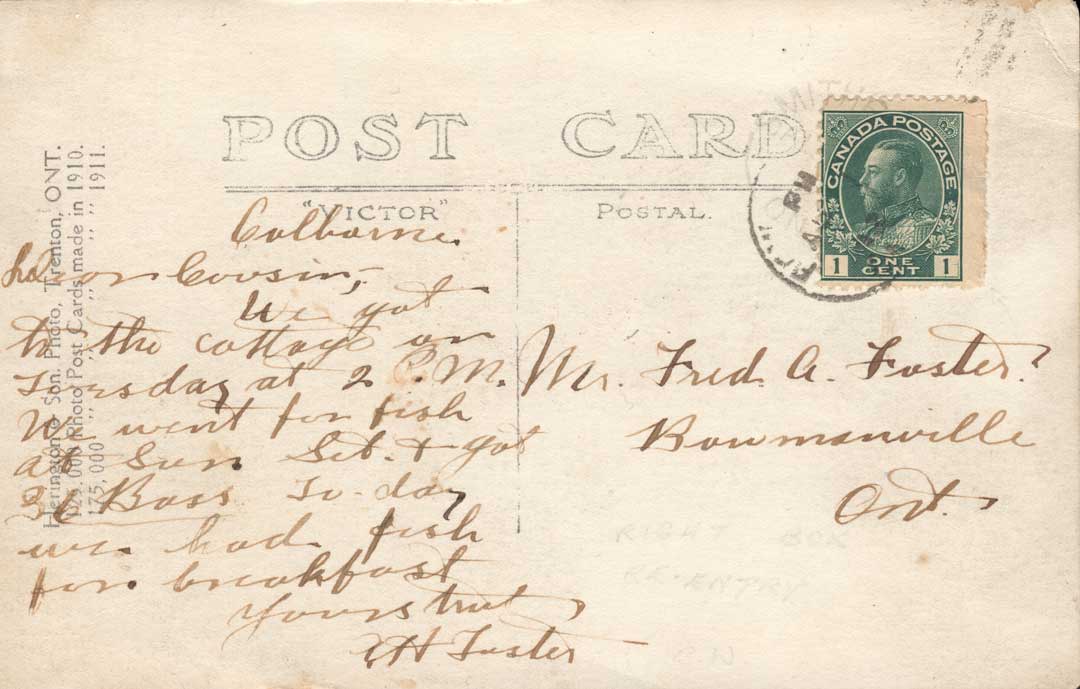 POST CARD
"VICTOR" POSTAL.
Herington & Son, Photo, Trenton, ONT.
125,000 Photo Post Cards made in 1910.
175,000 " " " " " 1911.
CANADA POSTAGE
1 ONE CENT 1
PM
Colborne
Cousin,
We got
to the cottage on
at 2 P.M.
We went for fish
at Sun Set. & got
36 Bass To-day
we had fish
for breakfast
Yours
Foster
Mr. Fred. A. Foster.
Bowmanville
Ont.
RIGHT BOX
RE-ENTRY